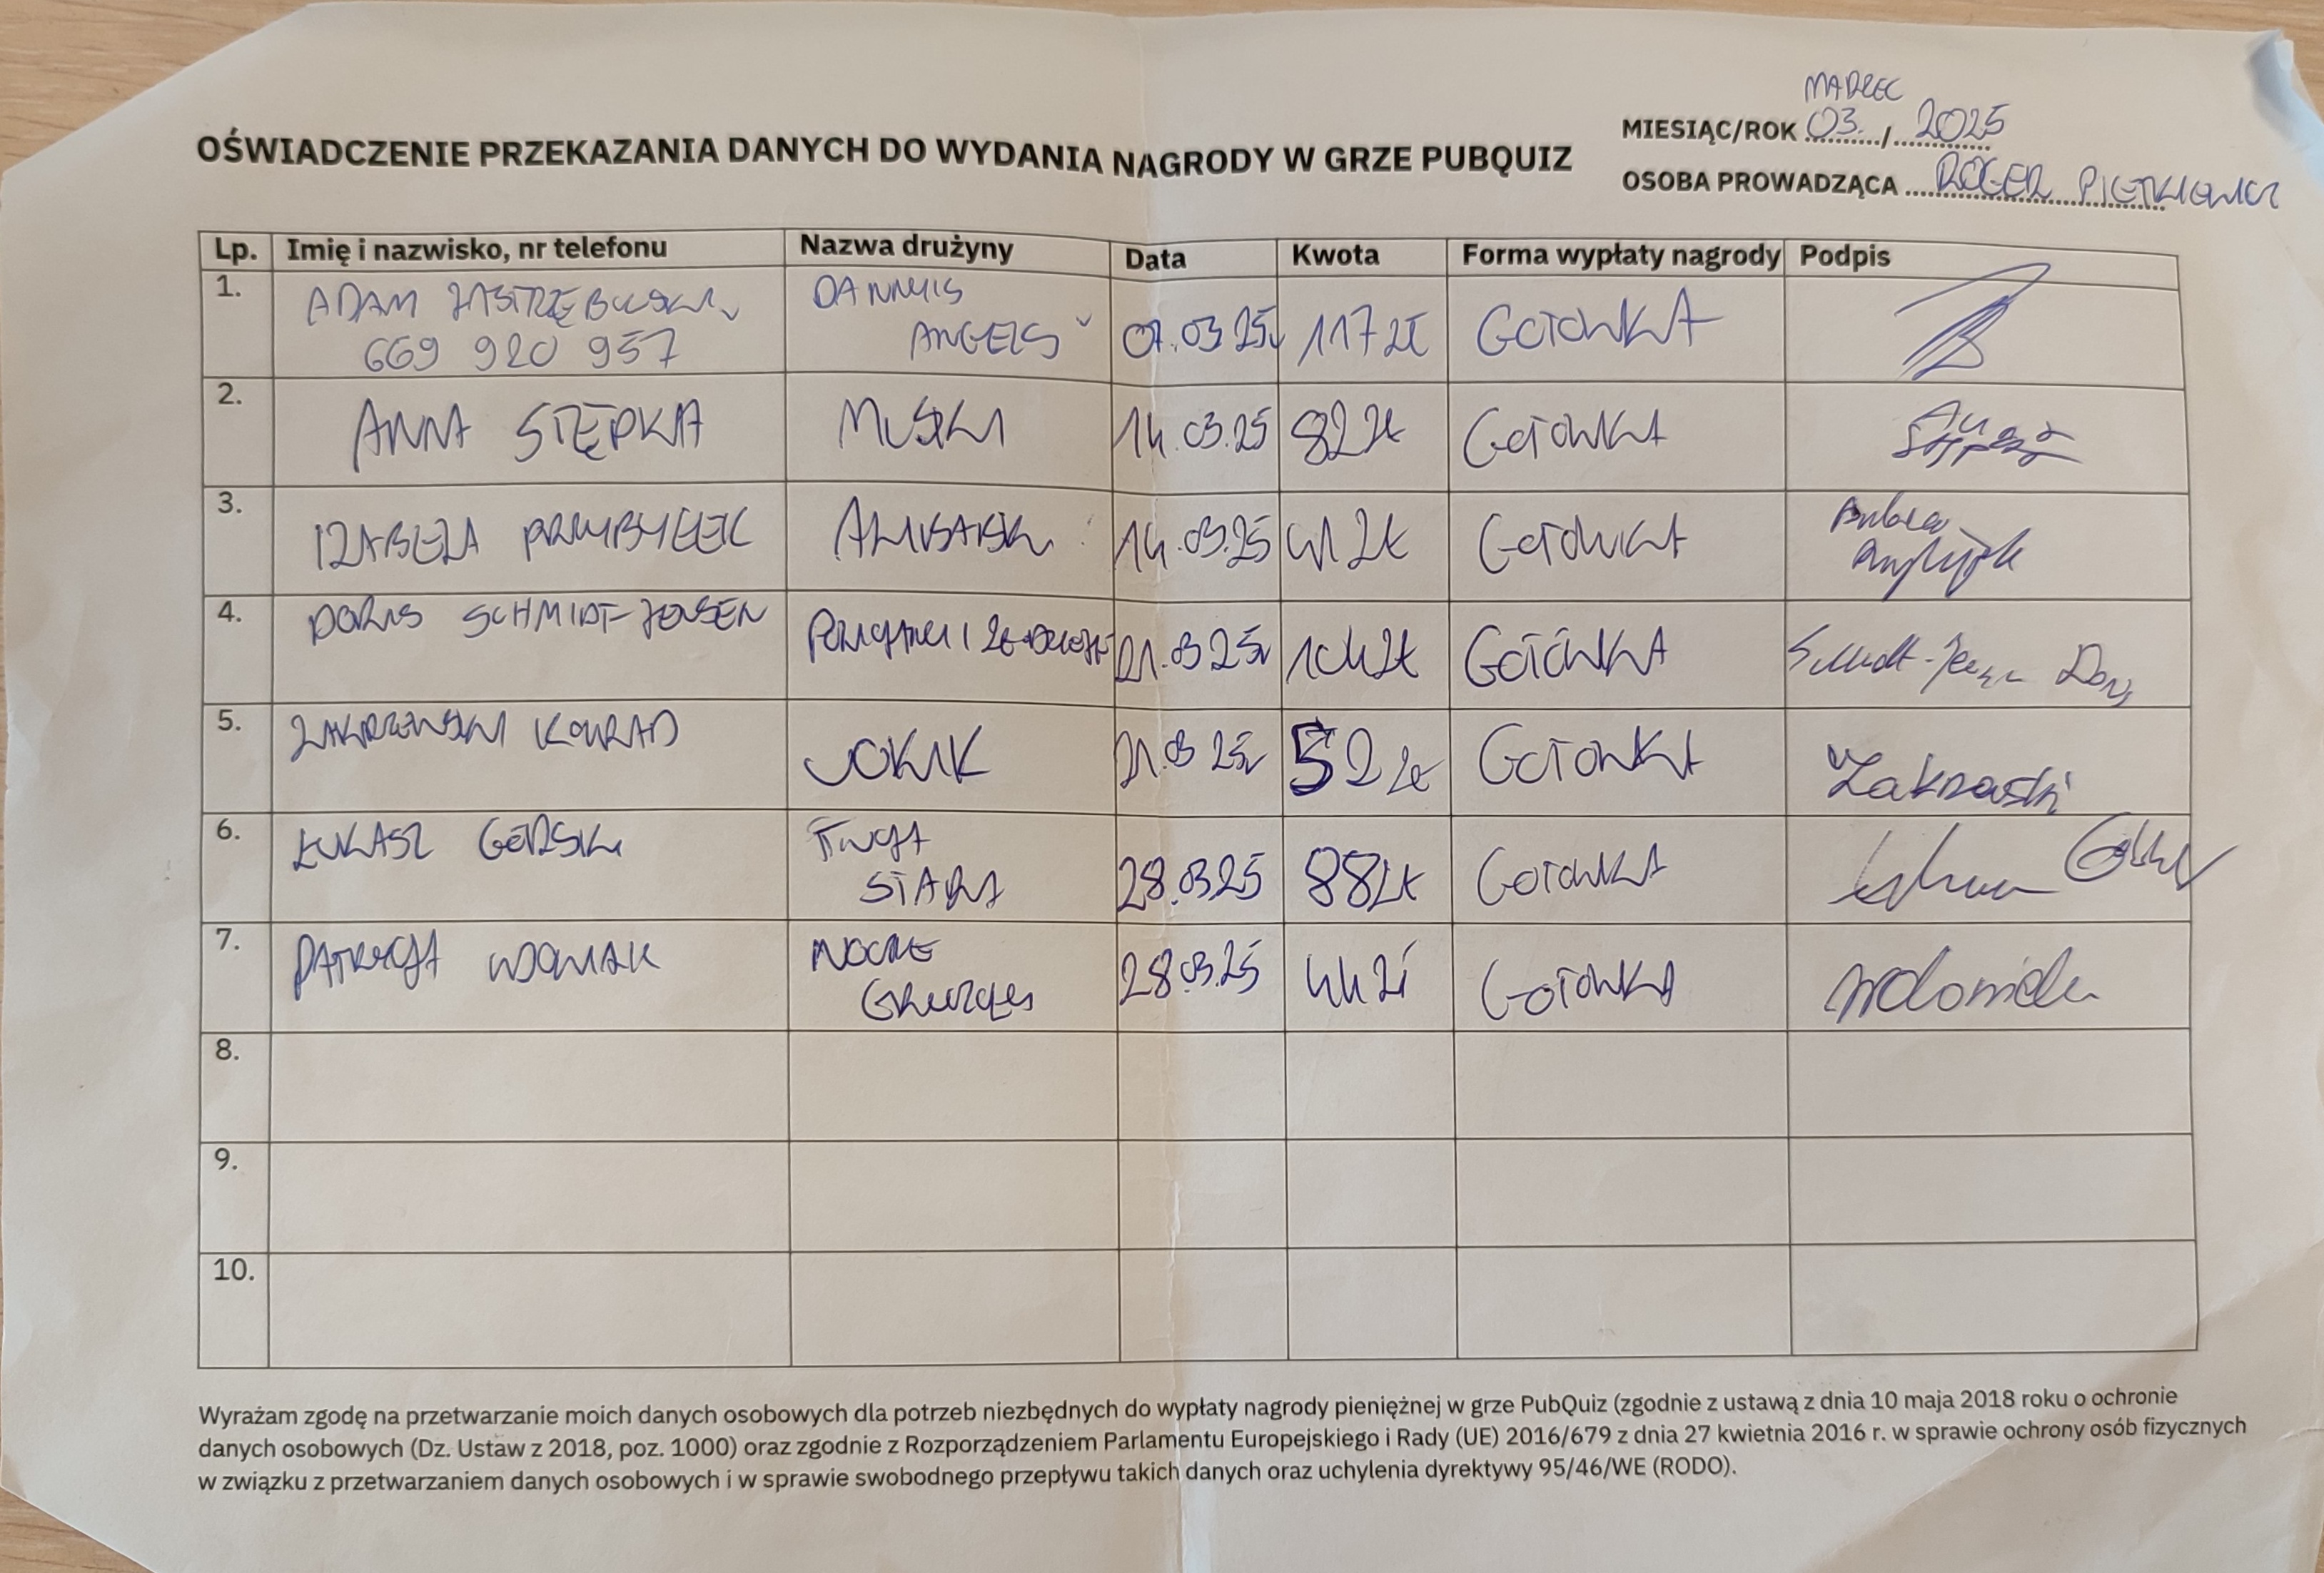 MARZEC
MIESIĄC/ROK 03. / 2025
OŚWIADCZENIE PRZEKAZANIA DANYCH DO WYDANIA NAGRODY W GRZE PUBQUIZ
OSOBA PROWADZĄCA ROGER PIETKIEWICZ
Lp. Imię i nazwisko, nr telefonu Nazwa drużyny Data Kwota Forma wypłaty nagrody Podpis
1. ADAM DANNYIS
669 920 957 ANGELS 07.03.25 117 zł GOTÓWKA
2. ANNA STĘPKA MUSZKI 14.03.25 82 zł GOTÓWKA
3. IZABELA PRZYBYŁEK 14.03.25 41 zł GOTÓWKA
4. DORIS SCHMIDT-JENSEN 21.03.25 104 zł GOTÓWKA Schmidt-Jensen Doris
5. ZAKRZEWSKI KONRAD JOKIK 21.03.25 52 zł GOTÓWKA Zakrzewski
6. ŁUKASZ GÓRSKI TWOJA
STARA 28.03.25 88 zł GOTÓWKA
7. PATRYCJA WDOWIAK NOCNE
28.03.25 44 zł GOTÓWKA
8.
9.
10.
Wyrażam zgodę na przetwarzanie moich danych osobowych dla potrzeb niezbędnych do wypłaty nagrody pieniężnej w grze PubQuiz (zgodnie z ustawą z dnia 10 maja 2018 roku o ochronie
danych osobowych (Dz. Ustaw z 2018, poz. 1000) oraz zgodnie z Rozporządzeniem Parlamentu Europejskiego i Rady (UE) 2016/679 z dnia 27 kwietnia 2016 r. w sprawie ochrony osób fizycznych
w związku z przetwarzaniem danych osobowych i w sprawie swobodnego przepływu takich danych oraz uchylenia dyrektywy 95/46/WE (RODO).